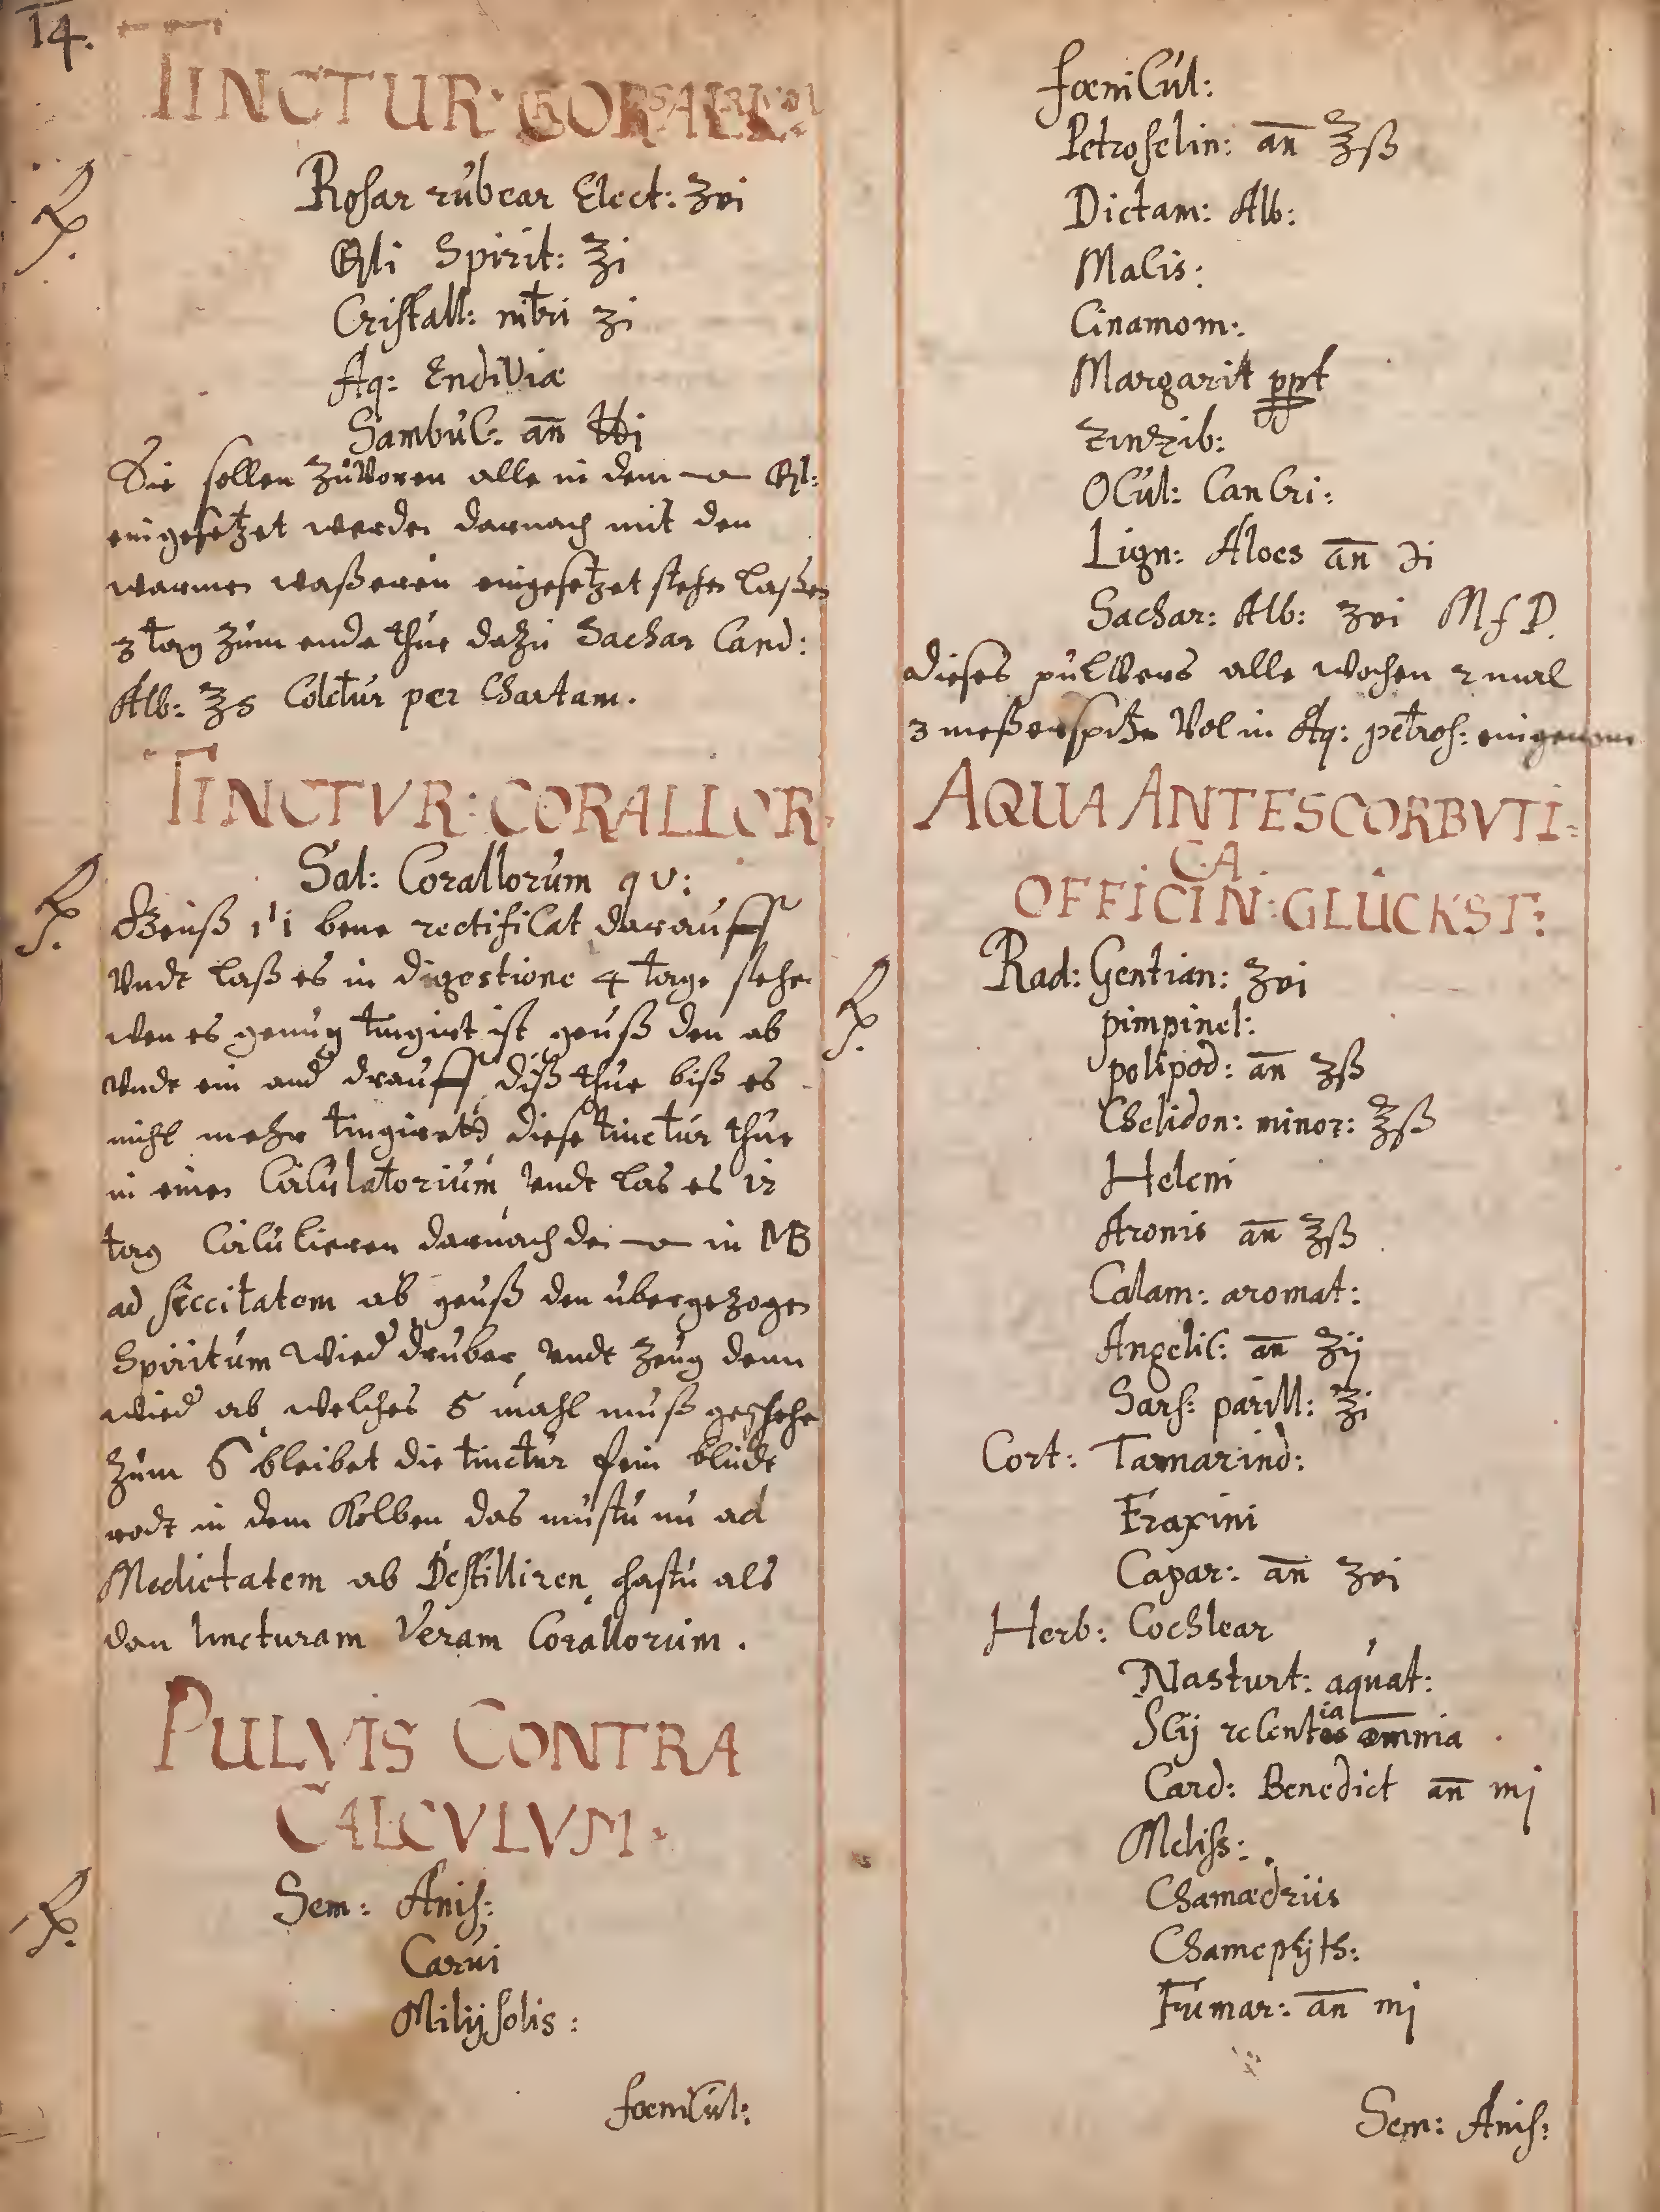 14.
TINCTUR:
Rosar rubear Elect: ʒvi
Qli Spirit: ℥i
Cristall: nitri ʒi
Aq: Endiviæ
Sambuc: an̄ ℔i
Sie sollen zuvoren alle in dem
eingesetzet werden darnach mit den
warmen waßeren eingesetzet stehen laßen
3 tag zum ende thue dazu Sachar Cand:
Alb: ℥s Coletur per Chartam.
TINCTVR: CORALLOR:
℞. Sal: Corallorum qv:
Geuß bene rectificat darauff
Vndt laß es in digestione 4 tage stehen
wen es genug tingirt ist geuß den ab
undt ein and drauff, diß thue biß es
nicht mehr tingiret, diese tinctur thue
in einen Circulatorium, undt las es 12
tag Circulieren darnach in MB
ad siccitatem ab geuß den ubergezogen
Spiritum wied druber, undt zeug denn
wied ab, welches 5 mahl muß geschehen
zum 6 bleibet die tinctur fein bludt
rodt in dem Kolben das mustu nu ad
Medietatem ab Destilliren, hastu als
dan tincturam Veram Corallorum.
PULVIS CONTRA
CALCVLVM.
℞. Sem: Anis:
Carui
Milij solis:
fœnicul:
fœnicul:
Petroselin: an̄ ℥ß
Dictam: Alb:
Macis:
Cinamom:
Margarit ppt
Zinzib:
Ocul: Cancri:
Lign: Aloes an̄ ℈i
Sachar: Alb: ʒvi M f P.
dieses pulvers alle wochen 2 mal
3 meßerspitzen Vol in Aq: petros: eingenom
AQUA ANTESCORBVTI=
CA
OFFICIN: GLÜCKST:
℞. Rad: Gentian: ʒvi
pimpinel:
polipod: an̄ ʒß
Chelidon: minor: ℥ß
Heleni
Aronis an̄ ℥ß
Calam: aromat:
Angelic: an̄ ʒij
Sars: parill: ℥i
Cort: Tamarind:
Fraxini
Capar: an̄ ʒvi
Herb: Cochlear
Nasturt: aquat:
recentia omnia
Card: Benedict an̄ mj
Meliss:
Chamædriis
Chamepijth:
Fumar: an̄ mj
Sem: Anis: